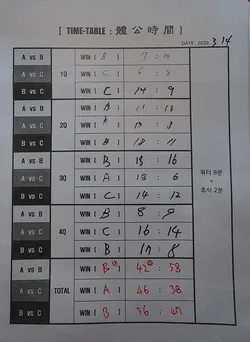 [ TIME-TABLE : 體 公 時 間 ]
DATE : 2020. 3. 14
A vs B WIN [ B ] 9 :
A vs C 1Q WIN [ C ] 6 : 8
B vs C WIN [ C ] 14 : 9
A vs B WIN [ B ] 11 : 13
A vs C 2Q WIN [ A ] :
B vs C WIN [ B ] 18 : 11
A vs B WIN [ B ] 13 : 16
A vs C 3Q WIN [ A ] 13 : 6
B vs C WIN [ C ] 14 : 12
A vs B WIN [ B ] 8 : 9
A vs C 4Q WIN [ C ] 16 : 14
B vs C WIN [ B ] 17 : 8
쿼터 8분
+
휴식 2분
A vs B WIN [ B ] 42 : 58
A vs C TOTAL WIN [ A ] 46 : 38
B vs C WIN [ B ] 56 :